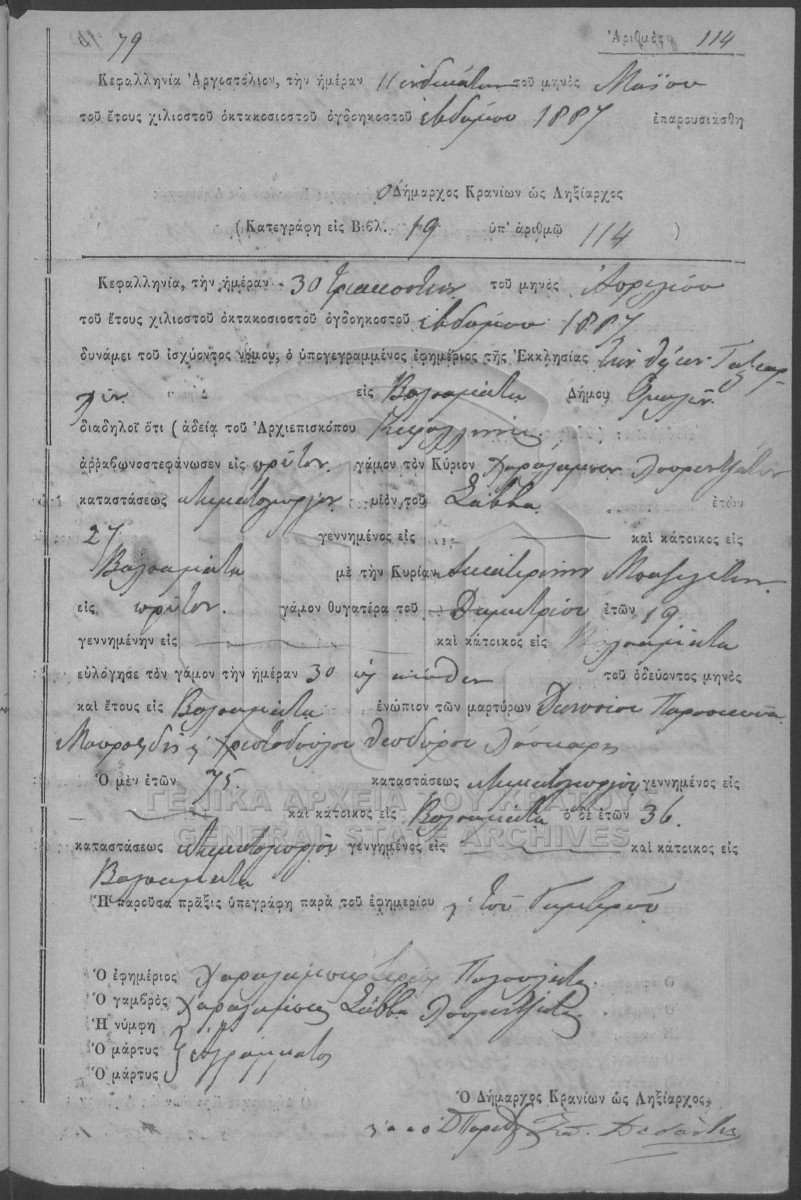 79 Ἀριθμὸς 114
Κεφαλληνία Ἀργοστόλιον, τὴν ἡμέραν 11 ἑνδεκάτην τοῦ μηνὸς Μαΐου
τοῦ ἔτους χιλιοστοῦ ὀκτακοσιοστοῦ ὀγδοηκοστοῦ ἑβδόμου 1887 ἐπαρουσιάσθη
ὁ Δήμαρχος Κρανίων ὡς Ληξίαρχος
(Κατεγράφη εἰς Βιβλ. 19 ὑπ' ἀριθμῷ 114 )
Κεφαλληνία, τὴν ἡμέραν 30 τριακοστὴν τοῦ μηνὸς Ἀπριλίου
τοῦ ἔτους χιλιοστοῦ ὀκτακοσιοστοῦ ὀγδοηκοστοῦ ἑβδόμου 1887
δυνάμει τοῦ ἰσχύοντος νόμου, ὁ ὑπογεγραμμένος ἐφημέριος τῆς Ἐκκλησίας τῶν Ταξιαρ
χῶν εἰς Βαλσαμάτα Δήμου Ὁμαλῶν
διαδηλοῖ ὅτι ( ἀδείᾳ τοῦ Ἀρχιεπισκόπου Κεφαλληνίας
ἀῤῥαβωνοστεφάνωσεν εἰς πρῶτον γάμον τὸν Κύριον Χαράλαμπον Λουρεντζάτον
καταστάσεως κτηματουργὸν υἱὸν τοῦ Σάββα ἐτῶν
27 γεννημένος εἰς καὶ κάτοικος εἰς
Βαλσαμάτα μὲ τὴν Κυρίαν Αἰκατερίνην
εἰς πρῶτον γάμον θυγατέρα τοῦ Δημητρίου ἐτῶν 19
γεννημένην εἰς καὶ κάτοικος εἰς Βαλσαμάτα
εὐλόγησε τὸν γάμον τὴν ἡμέραν 30 ὡς ἄνωθεν τοῦ ὁδεύοντος μηνὸς
καὶ ἔτους εἰς Βαλσαμάτα ἐνώπιον τῶν μαρτύρων Διονυσίου
Χριστοδούλου Θεοδώρου Λάσκαρη
Ὁ μὲν ἐτῶν 75 καταστάσεως κτηματουργὸς γεννημένος εἰς
καὶ κάτοικος εἰς Βαλσαμάτα ὁ δὲ ἐτῶν 36
καταστάσεως κτηματουργὸς γεννημένος εἰς καὶ κάτοικος εἰς
Βαλσαμάτα
Ἡ παροῦσα πρᾶξις ὑπεγράφη παρὰ τοῦ ἐφημερίου τοῦ γαμβροῦ
Ὁ ἐφημέριος Χαράλαμπος
Ὁ γαμβρὸς Χαράλαμπος Σάββα Λουρεντζάτος
Ἡ νύμφη
Ὁ μάρτυς Ἀγράμματος
Ὁ μάρτυς
Ὁ Δήμαρχος Κρανίων ὡς Ληξίαρχος
ΓΕΝΙΚΑ ΑΡΧΕΙΑ ΤΟΥ ΚΡΑΤΟΥΣ
GENERAL STATE ARCHIVES